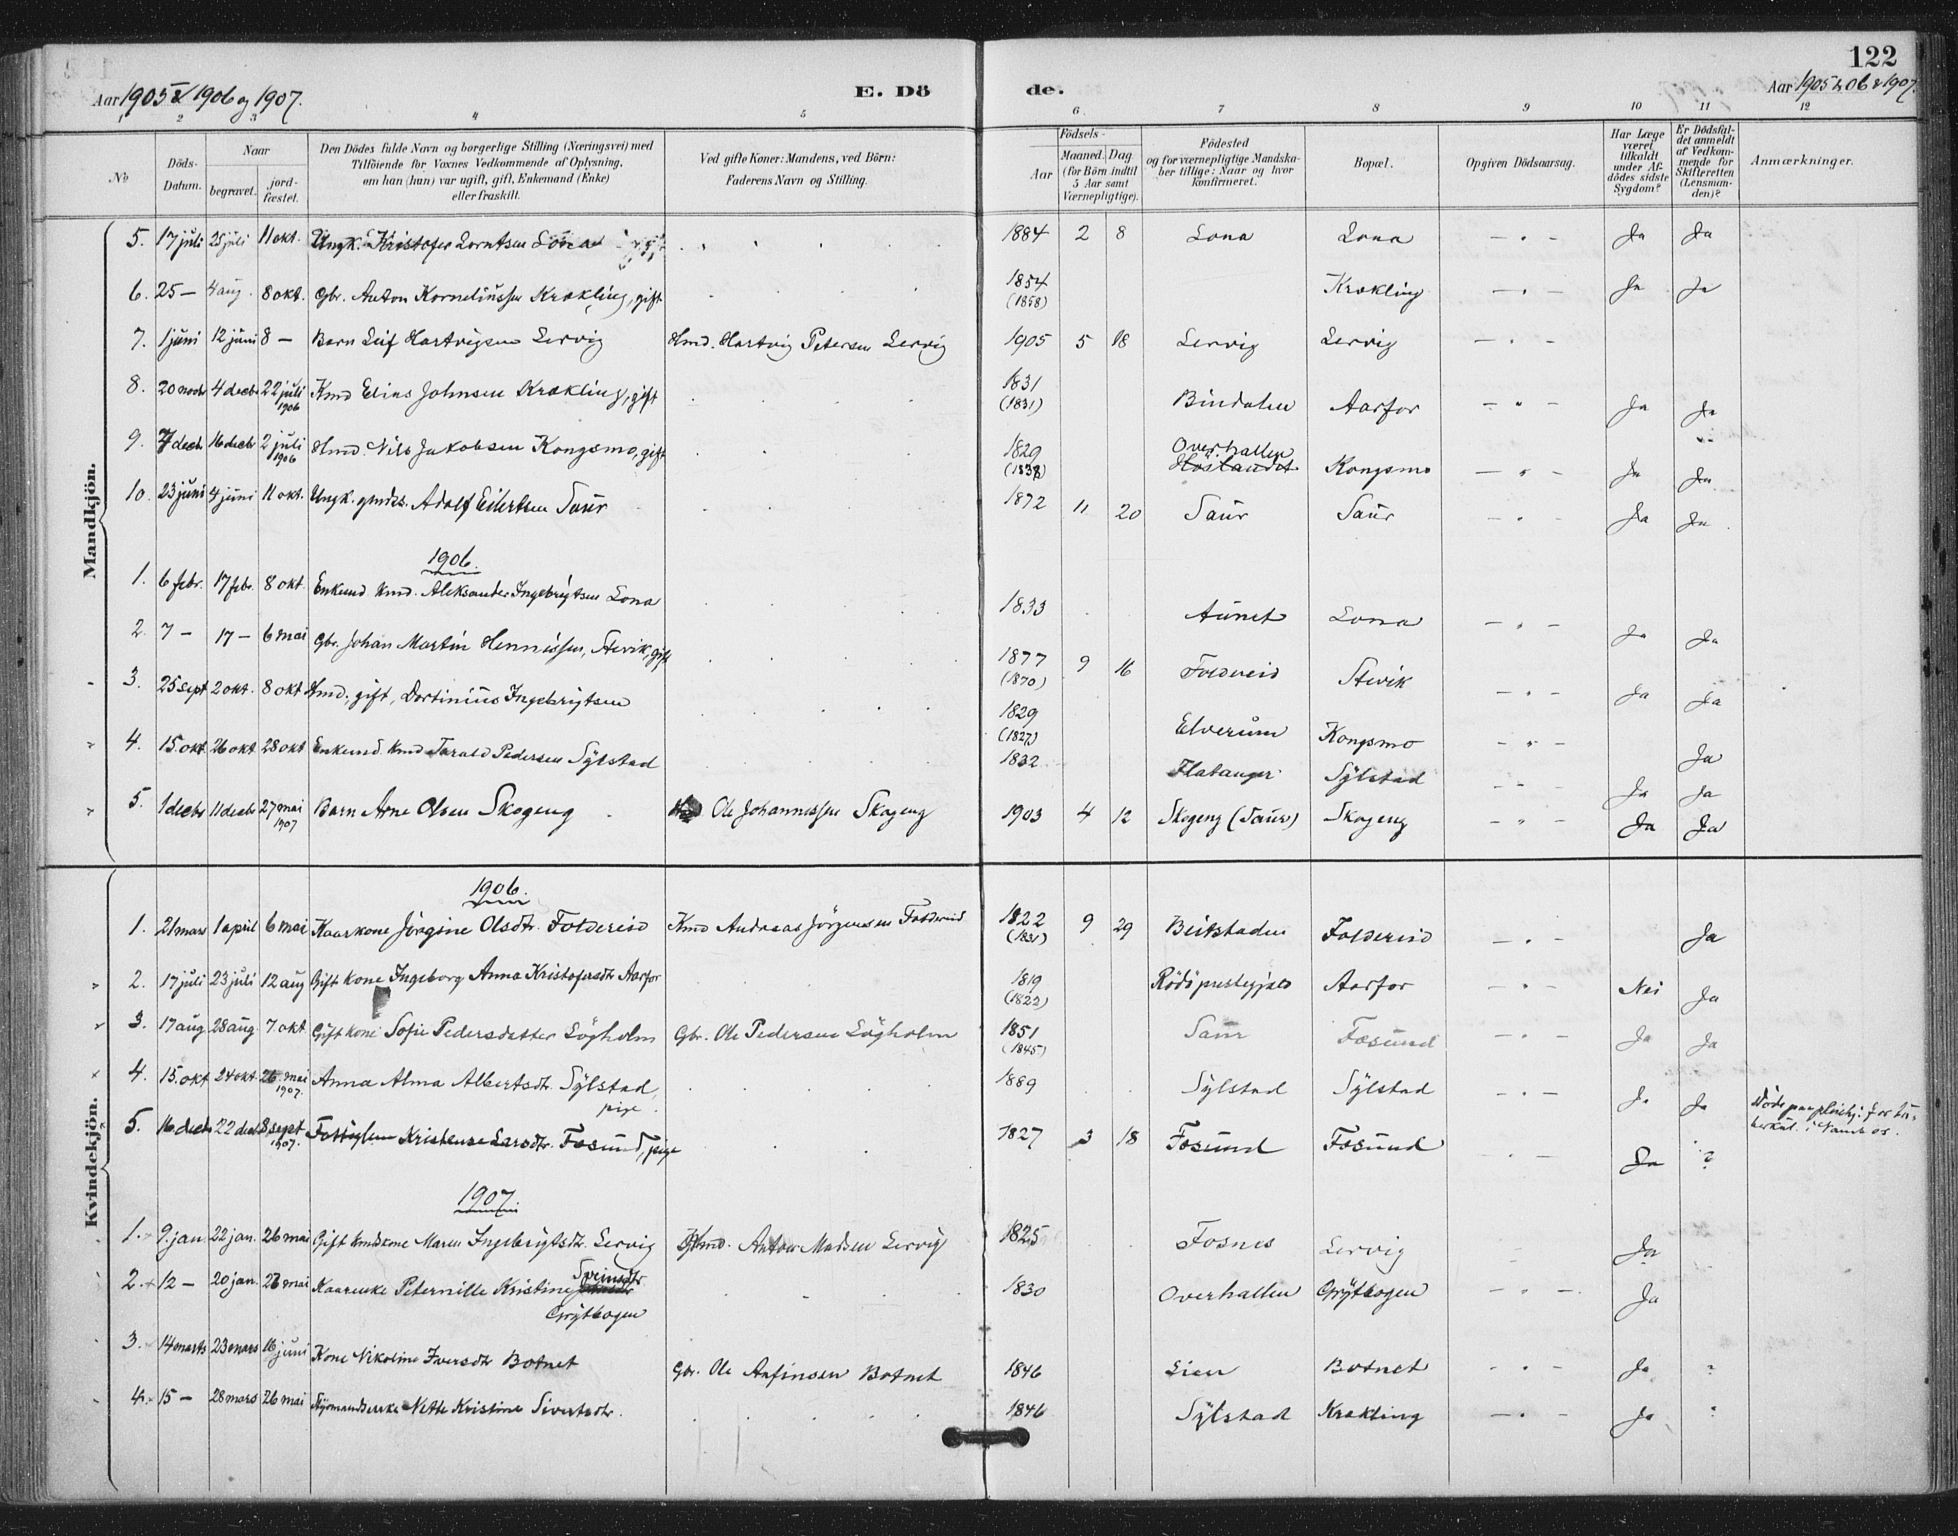 122
Aar 1905 & 1906 og 1907.
E. Dö
de.
Aar 1905 & 06 & 1907.
1 2 3 4 5 6 7 8 9 10 11 12
No
Döds-Datum.
Naar
begravet.
jord-fæstet.
Den Dödes fulde Navn og borgerlige Stilling (Næringsvei) med
Tilföiende for Voxnes Vedkommende af Oplysning,
om han (hun) var ugift, gift, Enkemand (Enke)
eller fraskilt.
Ved gifte Koner: Mandens, ved Börn:
Faderens Navn og Stilling.
Födsels-
Aar
Maaned. Dag
(for Börn indtil
5 Aar samt
Værnepligtige).
Födested
og for værnepligtige Mandska-
ber tillige: Naar og hvor
konfirmeret.
Bopæl.
Opgiven Dödsaarsag.
Har Læge
været
tilkaldt
under Af-
dödes sidste
Sygdom?
Er Dödsfal-
det anmeldt
af Vedkom-
mende for
Skifteretten
(Lensman-
den)?
Anmærkninger.
Mandkjön.
5. 17 juli 25 juli 11 okt. Ungk. Kristofer Lorntsen Lona 1884 2 8 Lona Lona — " — Ja Ja
6. 25 — 4 aug. 8 okt. Gbr. Anton Korneliussen Krækling, gift 1854 (1858) Krækling — " — Ja Ja
7. 1 juni 12 juni 8 — Barn Leif Hartvigsen Lervig Hmd. Hartvig Petersen Lervig 1905 5 18 Lervig Lervig — " —
8. 20 novbr 4 decbr 22 juli 1906 Kmd Elias Johnsen Krækling, gift 1831 (1831) Bindalen Aarfor — " — Ja Ja
9. 7 decbr 16 decbr 2 juli 1906 Hmd. Nils Jakobsen Kongsmo, gift 1829 (1838) Overhallen Höilandet Kongsmo — " — Ja Ja
10. 23 juni 4 juni 11 okt. Ungk. gmds. Adolf Eilertsen Saur 1872 11 20 Saur Saur — " — Ja Ja
1906.
1. 6 febr. 17 febr. 8 okt. Enkemd. Kmd. Aleksander Ingebrigtsen Lona 1833 Aunet Lona — " — Ja Ja
2. 7 — 17 — 6 mai Gbr. Johan Martin Hennissen, Stevik, gift 1877 (1870) 9 16 Foldereid Stevik — " — Ja Ja
3. 25 sept 2 okt. 8 okt Hmd., gift, Dortinius Ingebrigtsen 1829 (1827) Elverum Kongsmo — " — Ja
4. 15 okt. 26 okt. 28 okt Enkemd. Kmd Tarald Pedersen Sylstad 1832 Flatanger Sylstad — " — Ja Ja
5. 1 decbr 11 decbr 27 mai 1907 Barn Arne Olsen Skogeng Ole Johannessen Skogeng 1903 4 12 Skogeng (Saur) Skogeng — " — Ja Ja
Kvindekjön.
1906.
1. 21 mars 1 april 6 mai Kaarkone Jörgine Olsdtr. Foldereid Kmd Andreas Jörgensen Foldereid 1822 (1831) 9 29 Beitstaden Foldereid — " — Ja
2. 17 juli 23 juli 12 aug Gift kone Ingeborg Anna Kristofersdtr Aarfor 1819 (1822) Rödö prestegjeld Aarfor — " — Nei Ja
3. 17 aug 28 aug. 7 okt. Gift kone Sofie Pedersdatter Lögholm Gbr. Ole Pedersen Lögholm 1851 (1845) Saur Fosund — " — Ja Ja
4. 15. okt 24 okt. 26. mai 1907. Anna Alma Albertsdtr. Sylstad, pige. 1889 Sylstad Sylstad — " — Ja Ja Döde paa pleiehj. for tu-
berkul. i Namsos.
5. 16 decbr 22 decbr 8 sept 1907. Kristense Larsdtr. Fosund, pige 1827 3 18 Fosund Fosund — " — Ja ?
1907.
1. 9. jan 22 jan. 26 mai Gift kmdskone Maren Ingebrigtsdtr. Lervig Kmd. Anton Madsen Lervig 1825 Fosnes Lervig Ja
2. 12 — 20 jan. 26 mai Kaarenke Peternille Kristine Sveinsdtr Grytbogen 1830 Overhallen Grytbogen — " — Ja
3. 14 marts 23 mars 16 juni Kone Nikoline Iversdtr Botnet Gbr. Ole Anfinsen Botnet 1846 Lien Botnet — " — Ja ?
4. 15 — 28 mars 26 mai Nette Kristine Sivertsdtr. 1846 Sylstad Krækling — " — Ja ?